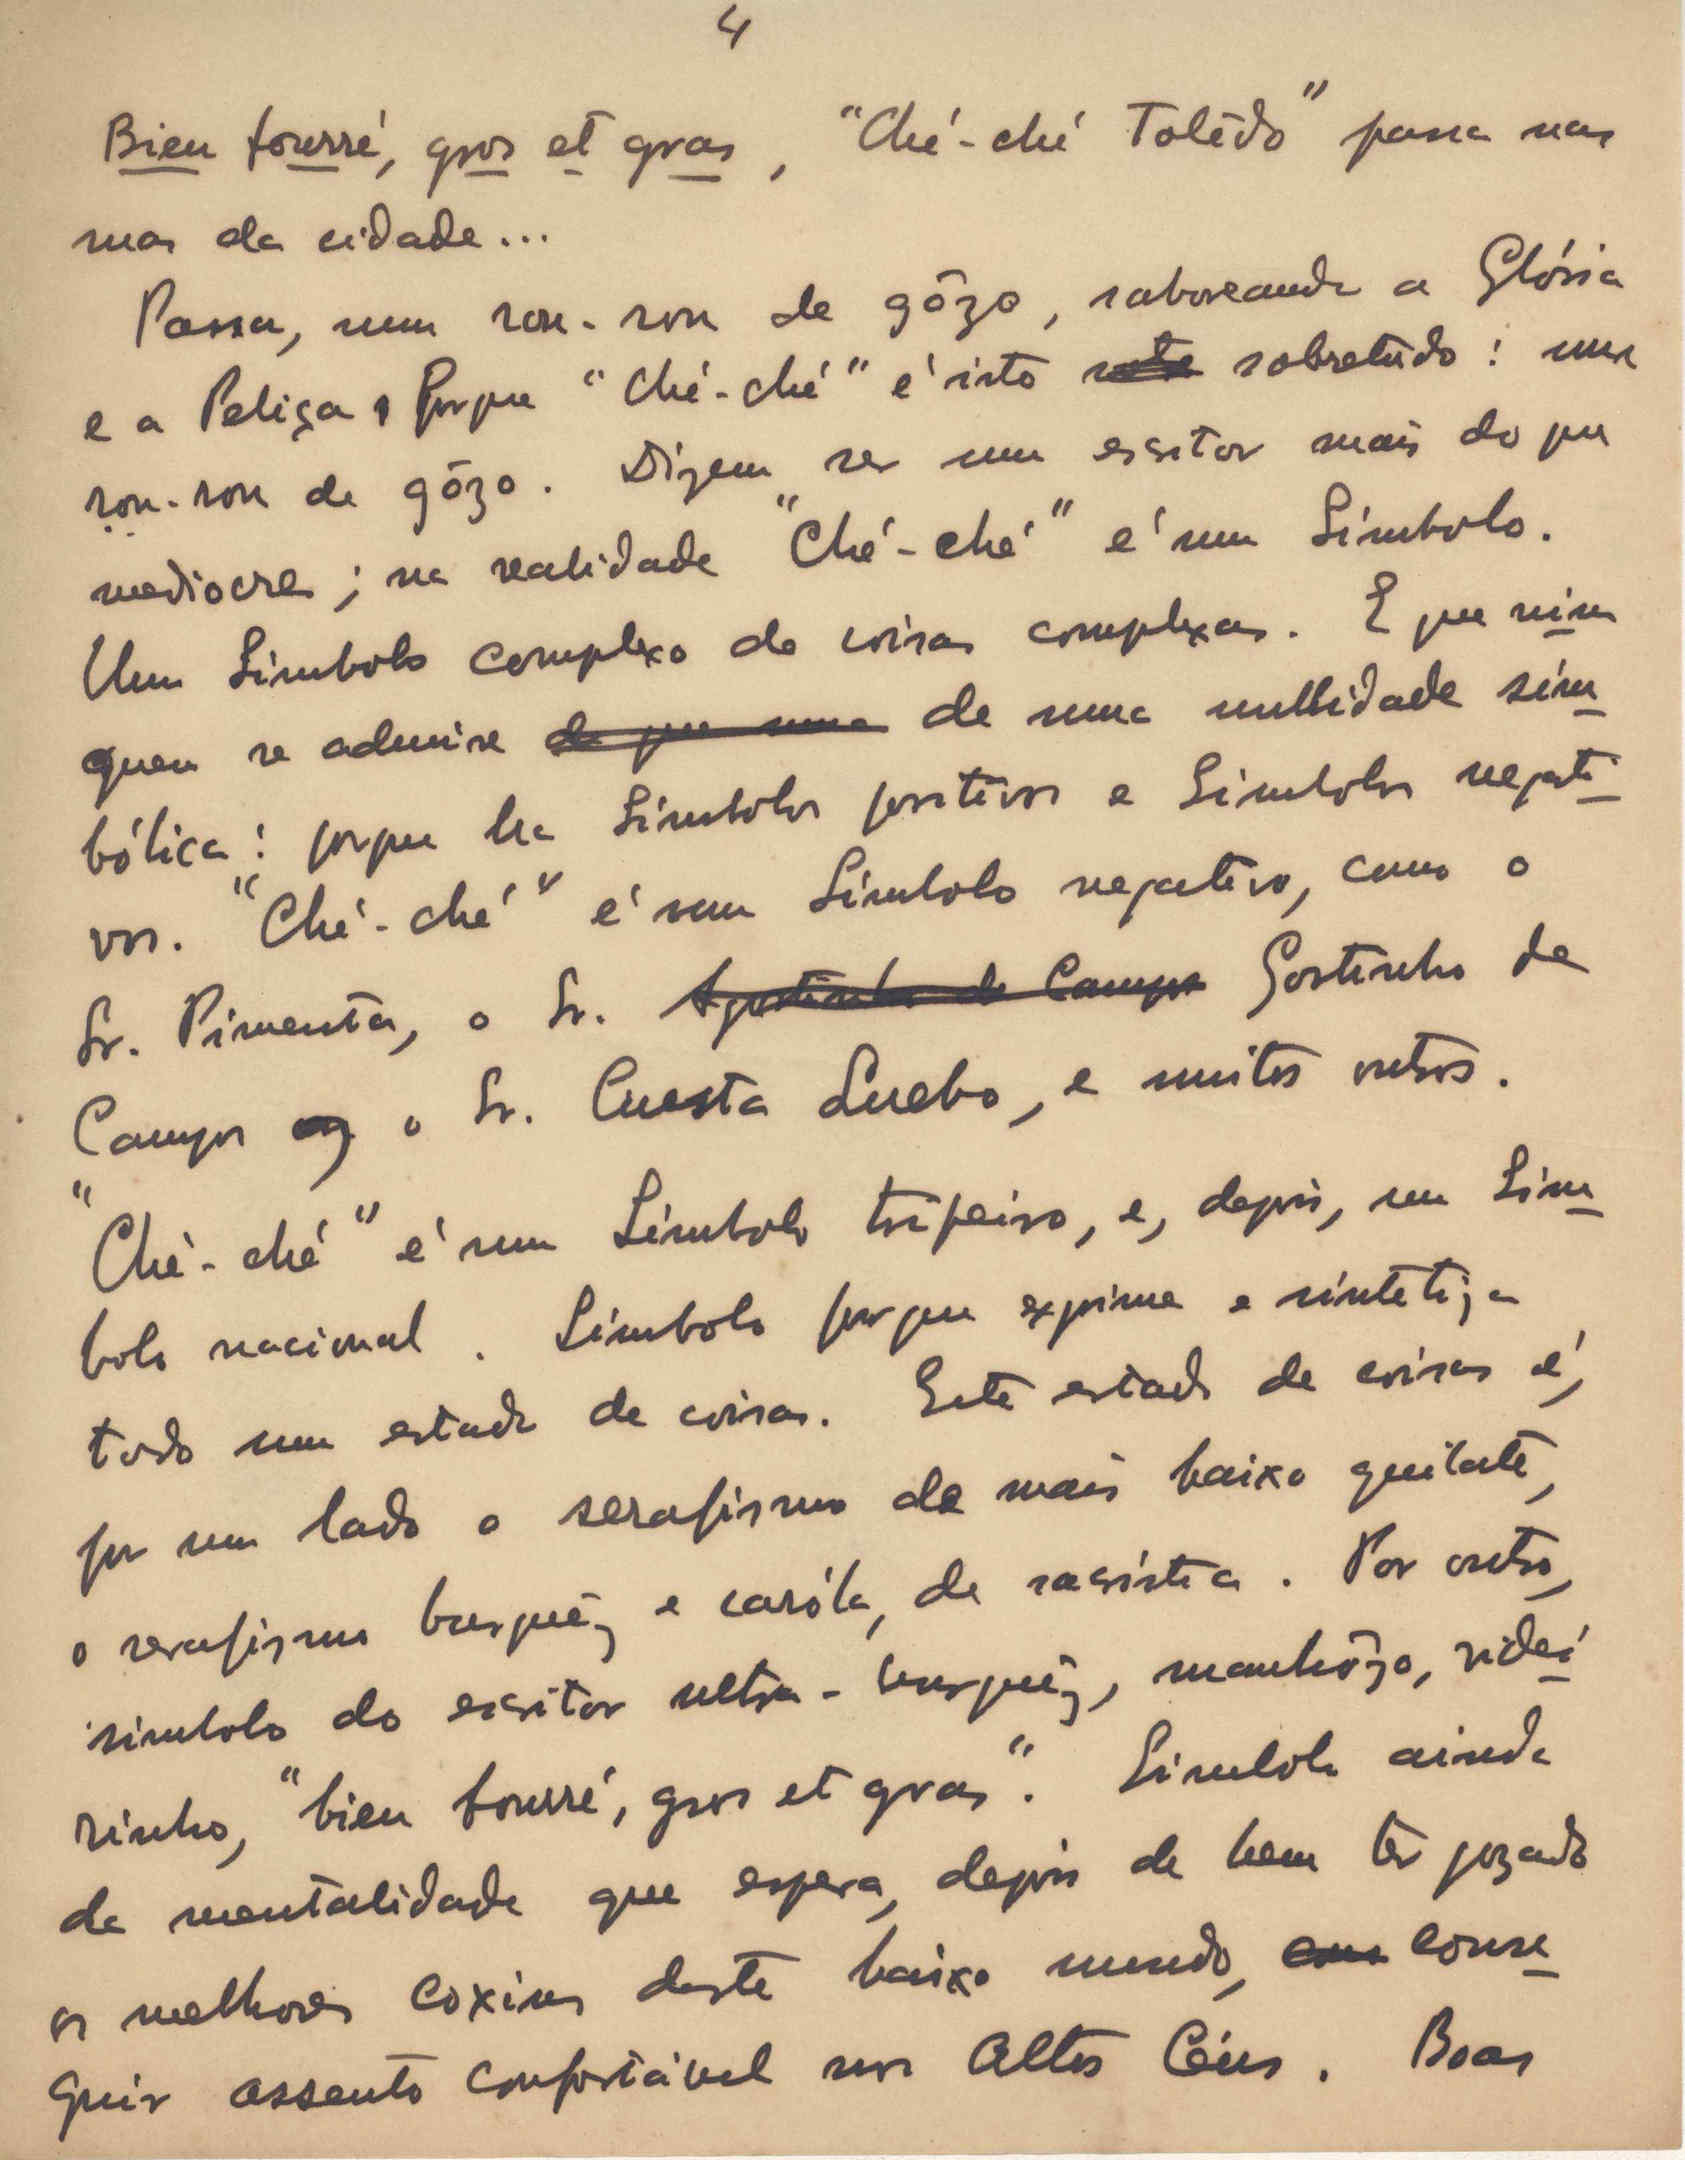 4
Bien fourré, gros et gras, "Ché-ché Tolêdo" passa nas
ruas da cidade...
Passa, num ron-ron de gôzo, saboreando a Glória
e a Peliça, Porque "Ché-ché" é isto sobretudo: um
ron-ron de gôzo. Dizem ser um escritor mais do que
mediocre; na realidade "Ché-ché" é um Símbolo.
Um Símbolo complexo de coisas complexas. E que nin
quem se admire de uma nullidade sím
bólica: porque ha Símbolos positivos e Símbolos negati
vos. "Ché-ché" é um Símbolo negativo, como o
Sr. Pimenta, o Sr. Agostinho de Campos Gostinho de
Campos o Sr. Cuesta Luebo, e muitos outros.
"Ché-ché" é um Símbolo tripeiro, e, depois, um Sím
bolo nacional. Símbolo porque exprime e sintetiza
todo um estado de coisas. Este estado de coisas é,
por um lado o serafismo de mais baixo quilate,
o serafismo burguêz e caróla, de sacristia. Por outro,
simbolo do escritor ultra-burguêz, manhôzo, videi
rinho, "bien fourré, gros et gras". Símbolo ainda
da mentalidade que espera, depois de bem ter gozado
os melhores coxins deste baixo mundo, conse
guir assento confortável nos Altos Céus. Boas